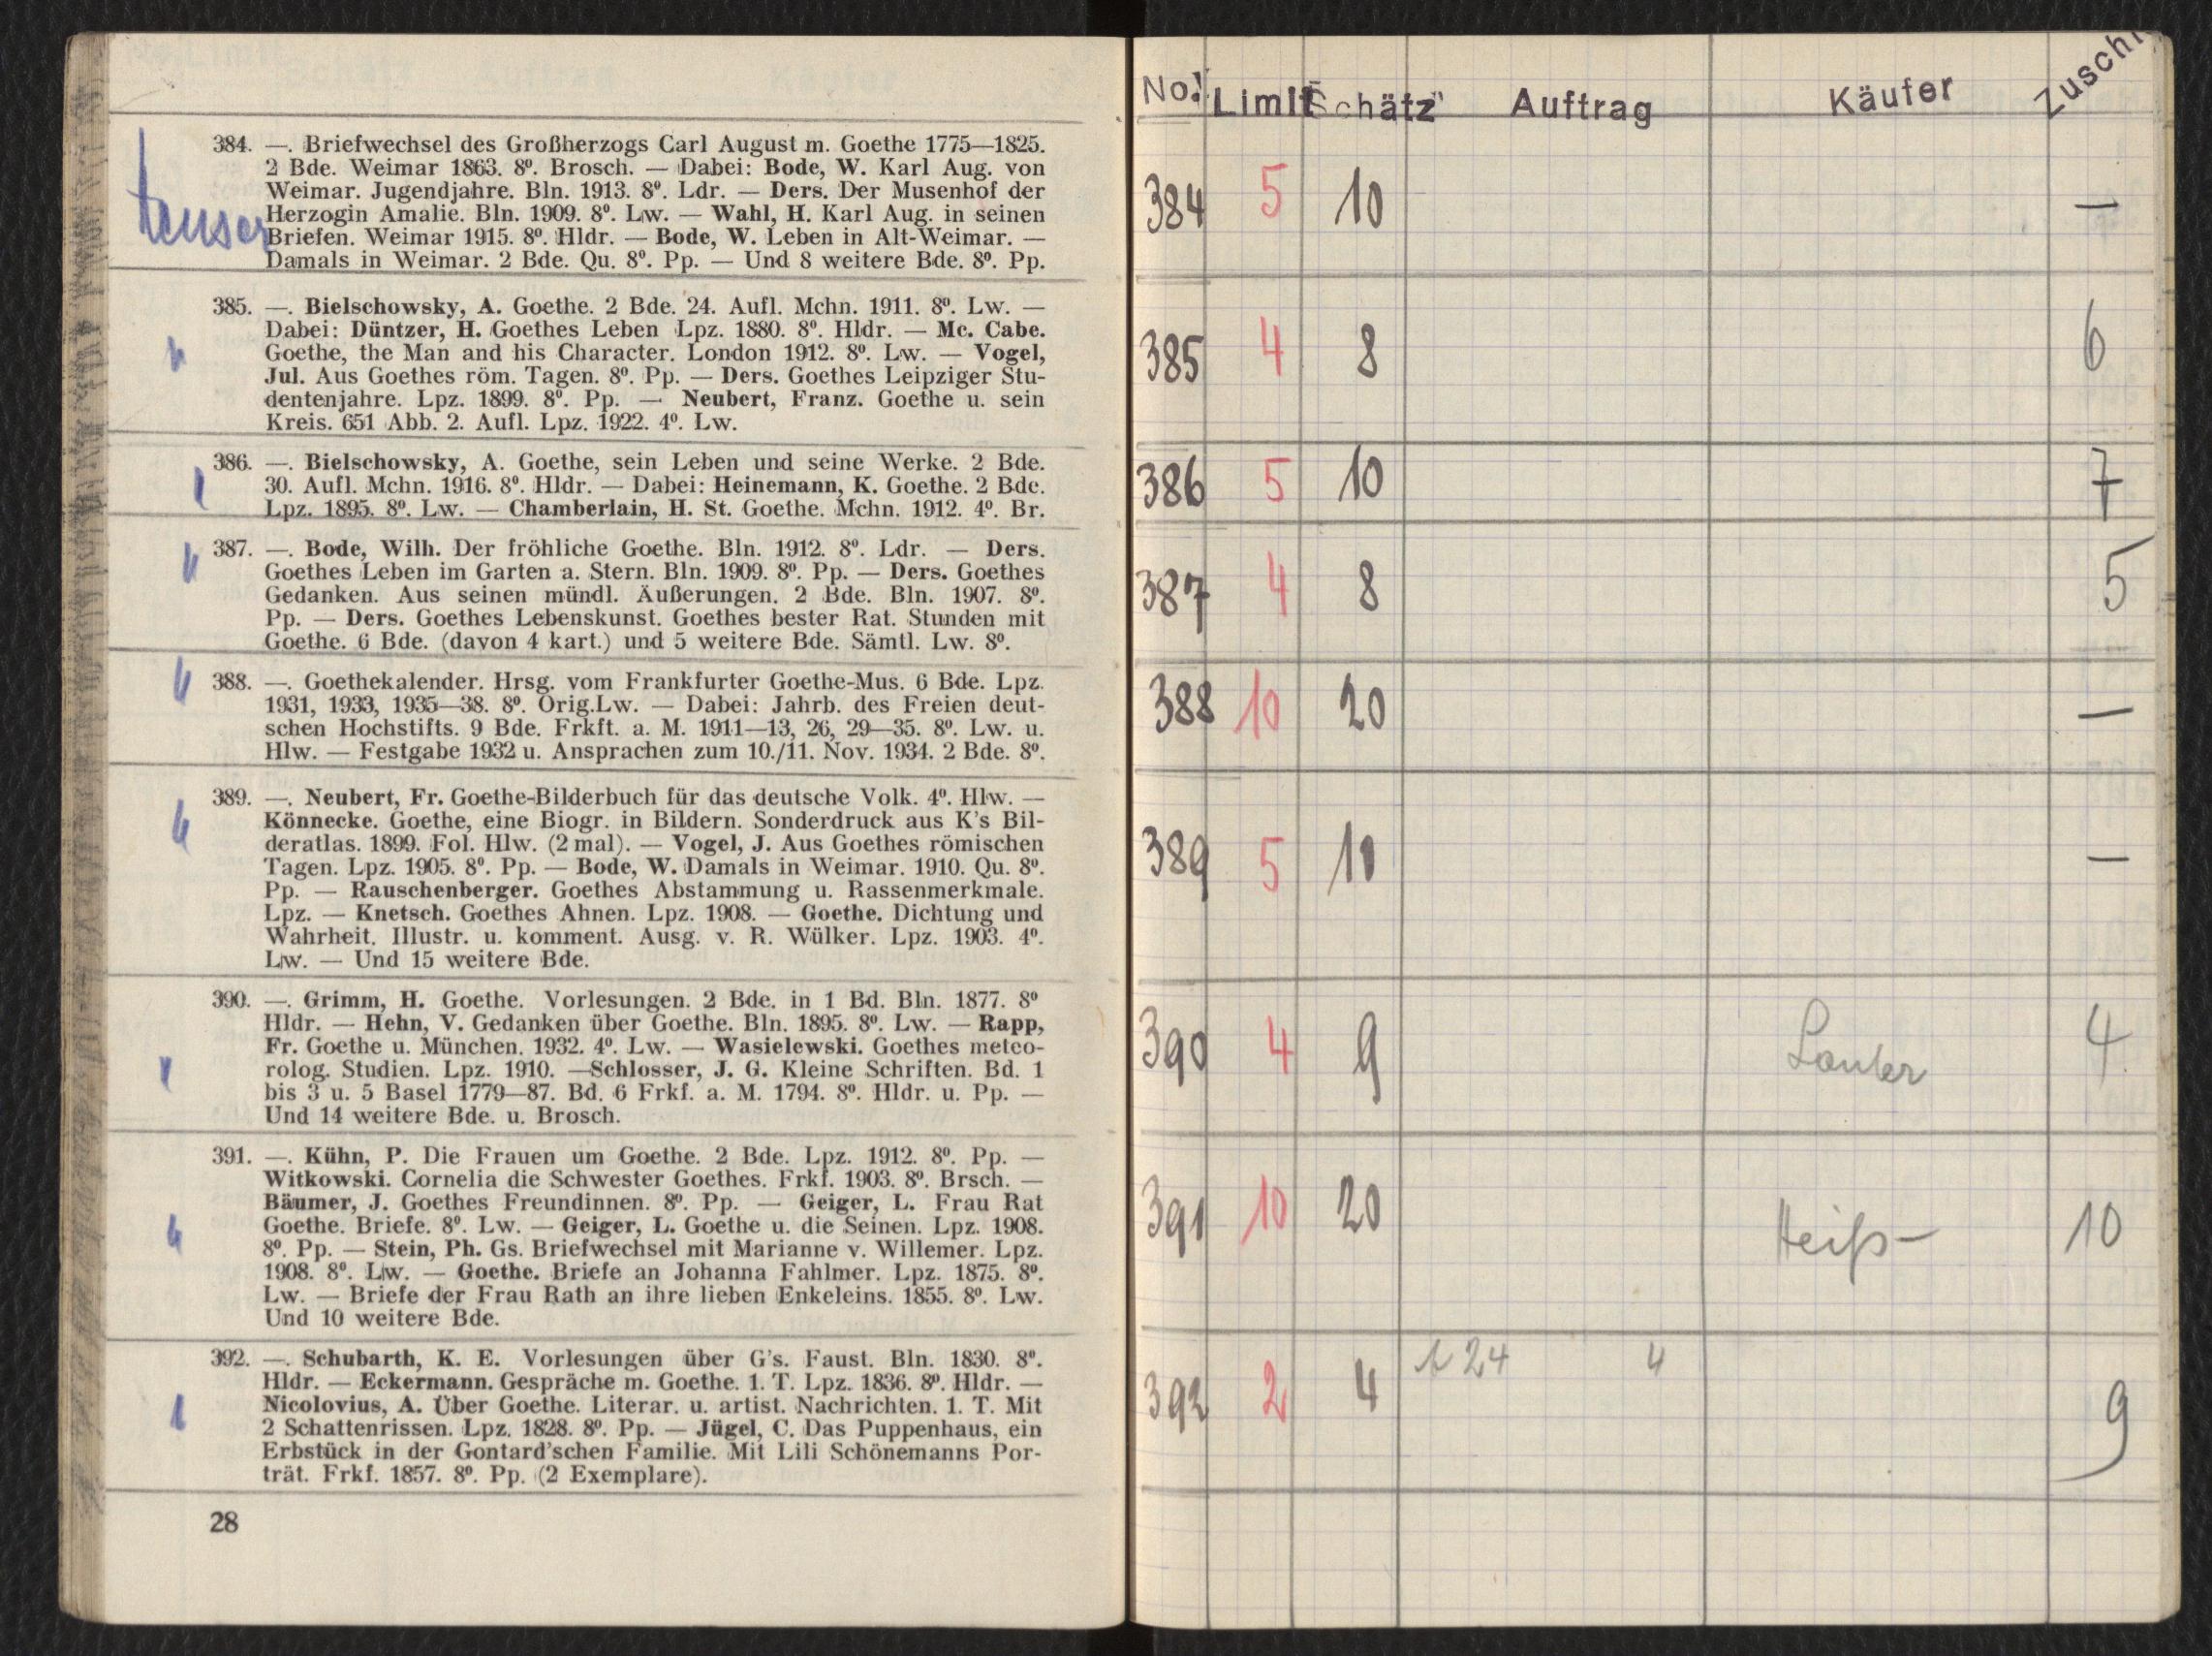 384. —. Briefwechsel des Großherzogs Carl August m. Goethe 1775—1825.
2 Bde. Weimar 1863. 8⁰. Brosch. — Dabei: Bode, W. Karl Aug. von
Weimar. Jugendjahre. Bln. 1913. 8⁰. Ldr. — Ders. Der Musenhof der
Herzogin Amalie. Bln. 1909. 8⁰. Lw. — Wahl, H. Karl Aug. in seinen
Briefen. Weimar 1915. 8⁰. Hldr. — Bode, W. Leben in Alt-Weimar. —
Damals in Weimar. 2 Bde. Qu. 8⁰. Pp. — Und 8 weitere Bde. 8⁰. Pp.
385. —. Bielschowsky, A. Goethe. 2 Bde. 24. Aufl. Mchn. 1911. 8⁰. Lw. —
Dabei: Düntzer, H. Goethes Leben Lpz. 1880. 8⁰. Hldr. — Mc. Cabe.
Goethe, the Man and his Character. London 1912. 8⁰. Lw. — Vogel,
Jul. Aus Goethes röm. Tagen. 8⁰. Pp. — Ders. Goethes Leipziger Stu-
dentenjahre. Lpz. 1899. 8⁰. Pp. — Neubert, Franz. Goethe u. sein
Kreis. 651 Abb. 2. Aufl. Lpz. 1922. 4⁰. Lw.
386. —. Bielschowsky, A. Goethe, sein Leben und seine Werke. 2 Bde.
30. Aufl. Mchn. 1916. 8⁰. Hldr. — Dabei: Heinemann, K. Goethe. 2 Bde.
Lpz. 1895. 8⁰. Lw. — Chamberlain, H. St. Goethe. Mchn. 1912. 4⁰. Br.
387. —. Bode, Wilh. Der fröhliche Goethe. Bln. 1912. 8⁰. Ldr. — Ders.
Goethes Leben im Garten a. Stern. Bln. 1909. 8⁰. Pp. — Ders. Goethes
Gedanken. Aus seinen mündl. Äußerungen. 2 Bde. Bln. 1907. 8⁰.
Pp. — Ders. Goethes Lebenskunst. Goethes bester Rat. Stunden mit
Goethe. 6 Bde. (davon 4 kart.) und 5 weitere Bde. Sämtl. Lw. 8⁰.
388. —. Goethekalender. Hrsg. vom Frankfurter Goethe-Mus. 6 Bde. Lpz.
1931, 1933, 1935—38. 8⁰. Orig.Lw. — Dabei: Jahrb. des Freien deut-
schen Hochstifts. 9 Bde. Frkft. a. M. 1911—13, 26, 29—35. 8⁰. Lw. u.
Hlw. — Festgabe 1932 u. Ansprachen zum 10./11. Nov. 1934. 2 Bde. 8⁰.
389. —. Neubert, Fr. Goethe-Bilderbuch für das deutsche Volk. 4⁰. Hlw. —
Könnecke. Goethe, eine Biogr. in Bildern. Sonderdruck aus K's Bil-
deratlas. 1899. Fol. Hlw. (2 mal). — Vogel, J. Aus Goethes römischen
Tagen. Lpz. 1905. 8⁰. Pp. — Bode, W. Damals in Weimar. 1910. Qu. 8⁰.
Pp. — Rauschenberger. Goethes Abstammung u. Rassenmerkmale.
Lpz. — Knetsch. Goethes Ahnen. Lpz. 1908. — Goethe. Dichtung und
Wahrheit. Illustr. u. komment. Ausg. v. R. Wülker. Lpz. 1903. 4⁰.
Lw. — Und 15 weitere Bde.
390. —. Grimm, H. Goethe. Vorlesungen. 2 Bde. in 1 Bd. Bln. 1877. 8⁰
Hldr. — Hehn, V. Gedanken über Goethe. Bln. 1895. 8⁰. Lw. — Rapp,
Fr. Goethe u. München. 1932. 4⁰. Lw. — Wasielewski. Goethes meteo-
rolog. Studien. Lpz. 1910. —Schlosser, J. G. Kleine Schriften. Bd. 1
bis 3 u. 5 Basel 1779—87. Bd. 6 Frkf. a. M. 1794. 8⁰. Hldr. u. Pp. —
Und 14 weitere Bde. u. Brosch.
391. —. Kühn, P. Die Frauen um Goethe. 2 Bde. Lpz. 1912. 8⁰. Pp. —
Witkowski. Cornelia die Schwester Goethes. Frkf. 1903. 8⁰. Brsch. —
Bäumer, J. Goethes Freundinnen. 8⁰. Pp. — Geiger, L. Frau Rat
Goethe. Briefe. 8⁰. Lw. — Geiger, L. Goethe u. die Seinen. Lpz. 1908.
8⁰. Pp. — Stein, Ph. Gs. Briefwechsel mit Marianne v. Willemer. Lpz.
1908. 8⁰. Lw. — Goethe. Briefe an Johanna Fahlmer. Lpz. 1875. 8⁰.
Lw. — Briefe der Frau Rath an ihre lieben Enkeleins. 1855. 8⁰. Lw.
Und 10 weitere Bde.
392. —. Schubarth, K. E. Vorlesungen über G's. Faust. Bln. 1830. 8⁰.
Hldr. — Eckermann. Gespräche m. Goethe. 1. T. Lpz. 1836. 8⁰. Hldr. —
Nicolovius, A. Über Goethe. Literar. u. artist. Nachrichten. 1. T. Mit
2 Schattenrissen. Lpz. 1828. 8⁰. Pp. — Jügel, C. Das Puppenhaus, ein
Erbstück in der Gontard'schen Familie. Mit Lili Schönemanns Por-
trät. Frkf. 1857. 8⁰. Pp. (2 Exemplare).
28
No. Limit Schätz Auftrag Käufer Zuschl
384 5 10 —
385 4 8 6
386 5 10 7
387 4 8 5
388 10 20 —
389 5 10 —
390 4 9 4
391 10 20 Heiß- 10
392 2 4 24 4 9